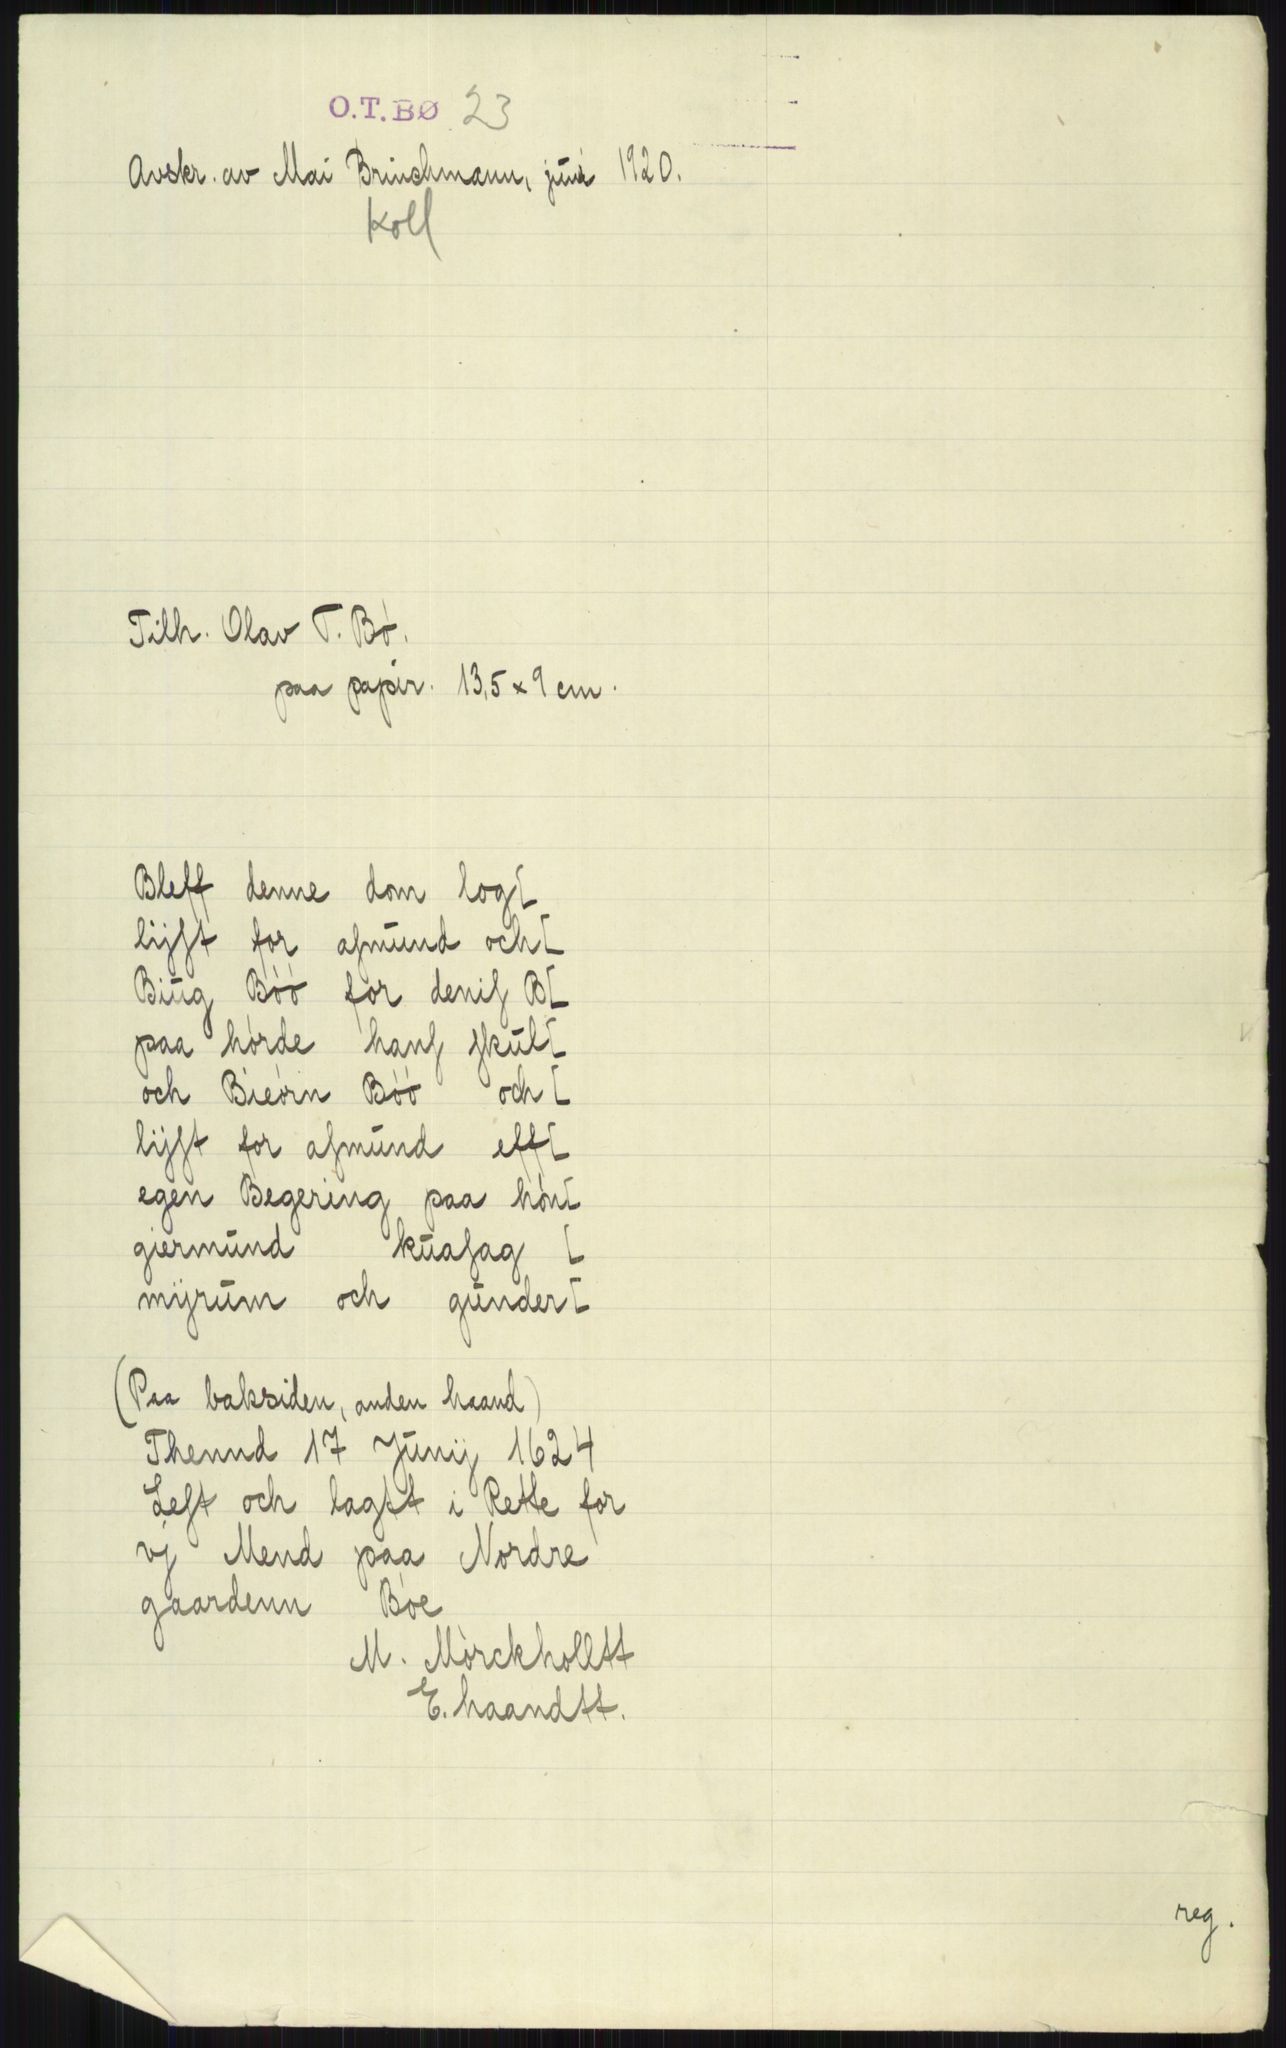 O.T.BØ 23
Avskr. av Mai Brinchmann, juni 1920.
Koll
Tilh. Olav T. Bø.
paa papir. 13,5 x 9 cm.
Bleff denne dom log[
lijst for asmund och[
Biug Böö for denis B[
paa hörde hans skul[
och Bieörn Böö och [
lijst for asmund eff[
egen Begering paa hön[
giermund kuasag [
mijrum och gunder[
(Paa baksiden, anden haand)
Thennd 17 Junij 1624
Lest och lagtt i Rette for
vj Mend paa Nordre
gaardenn Böe
M. Mörckholltt
E. haandtt.
reg.